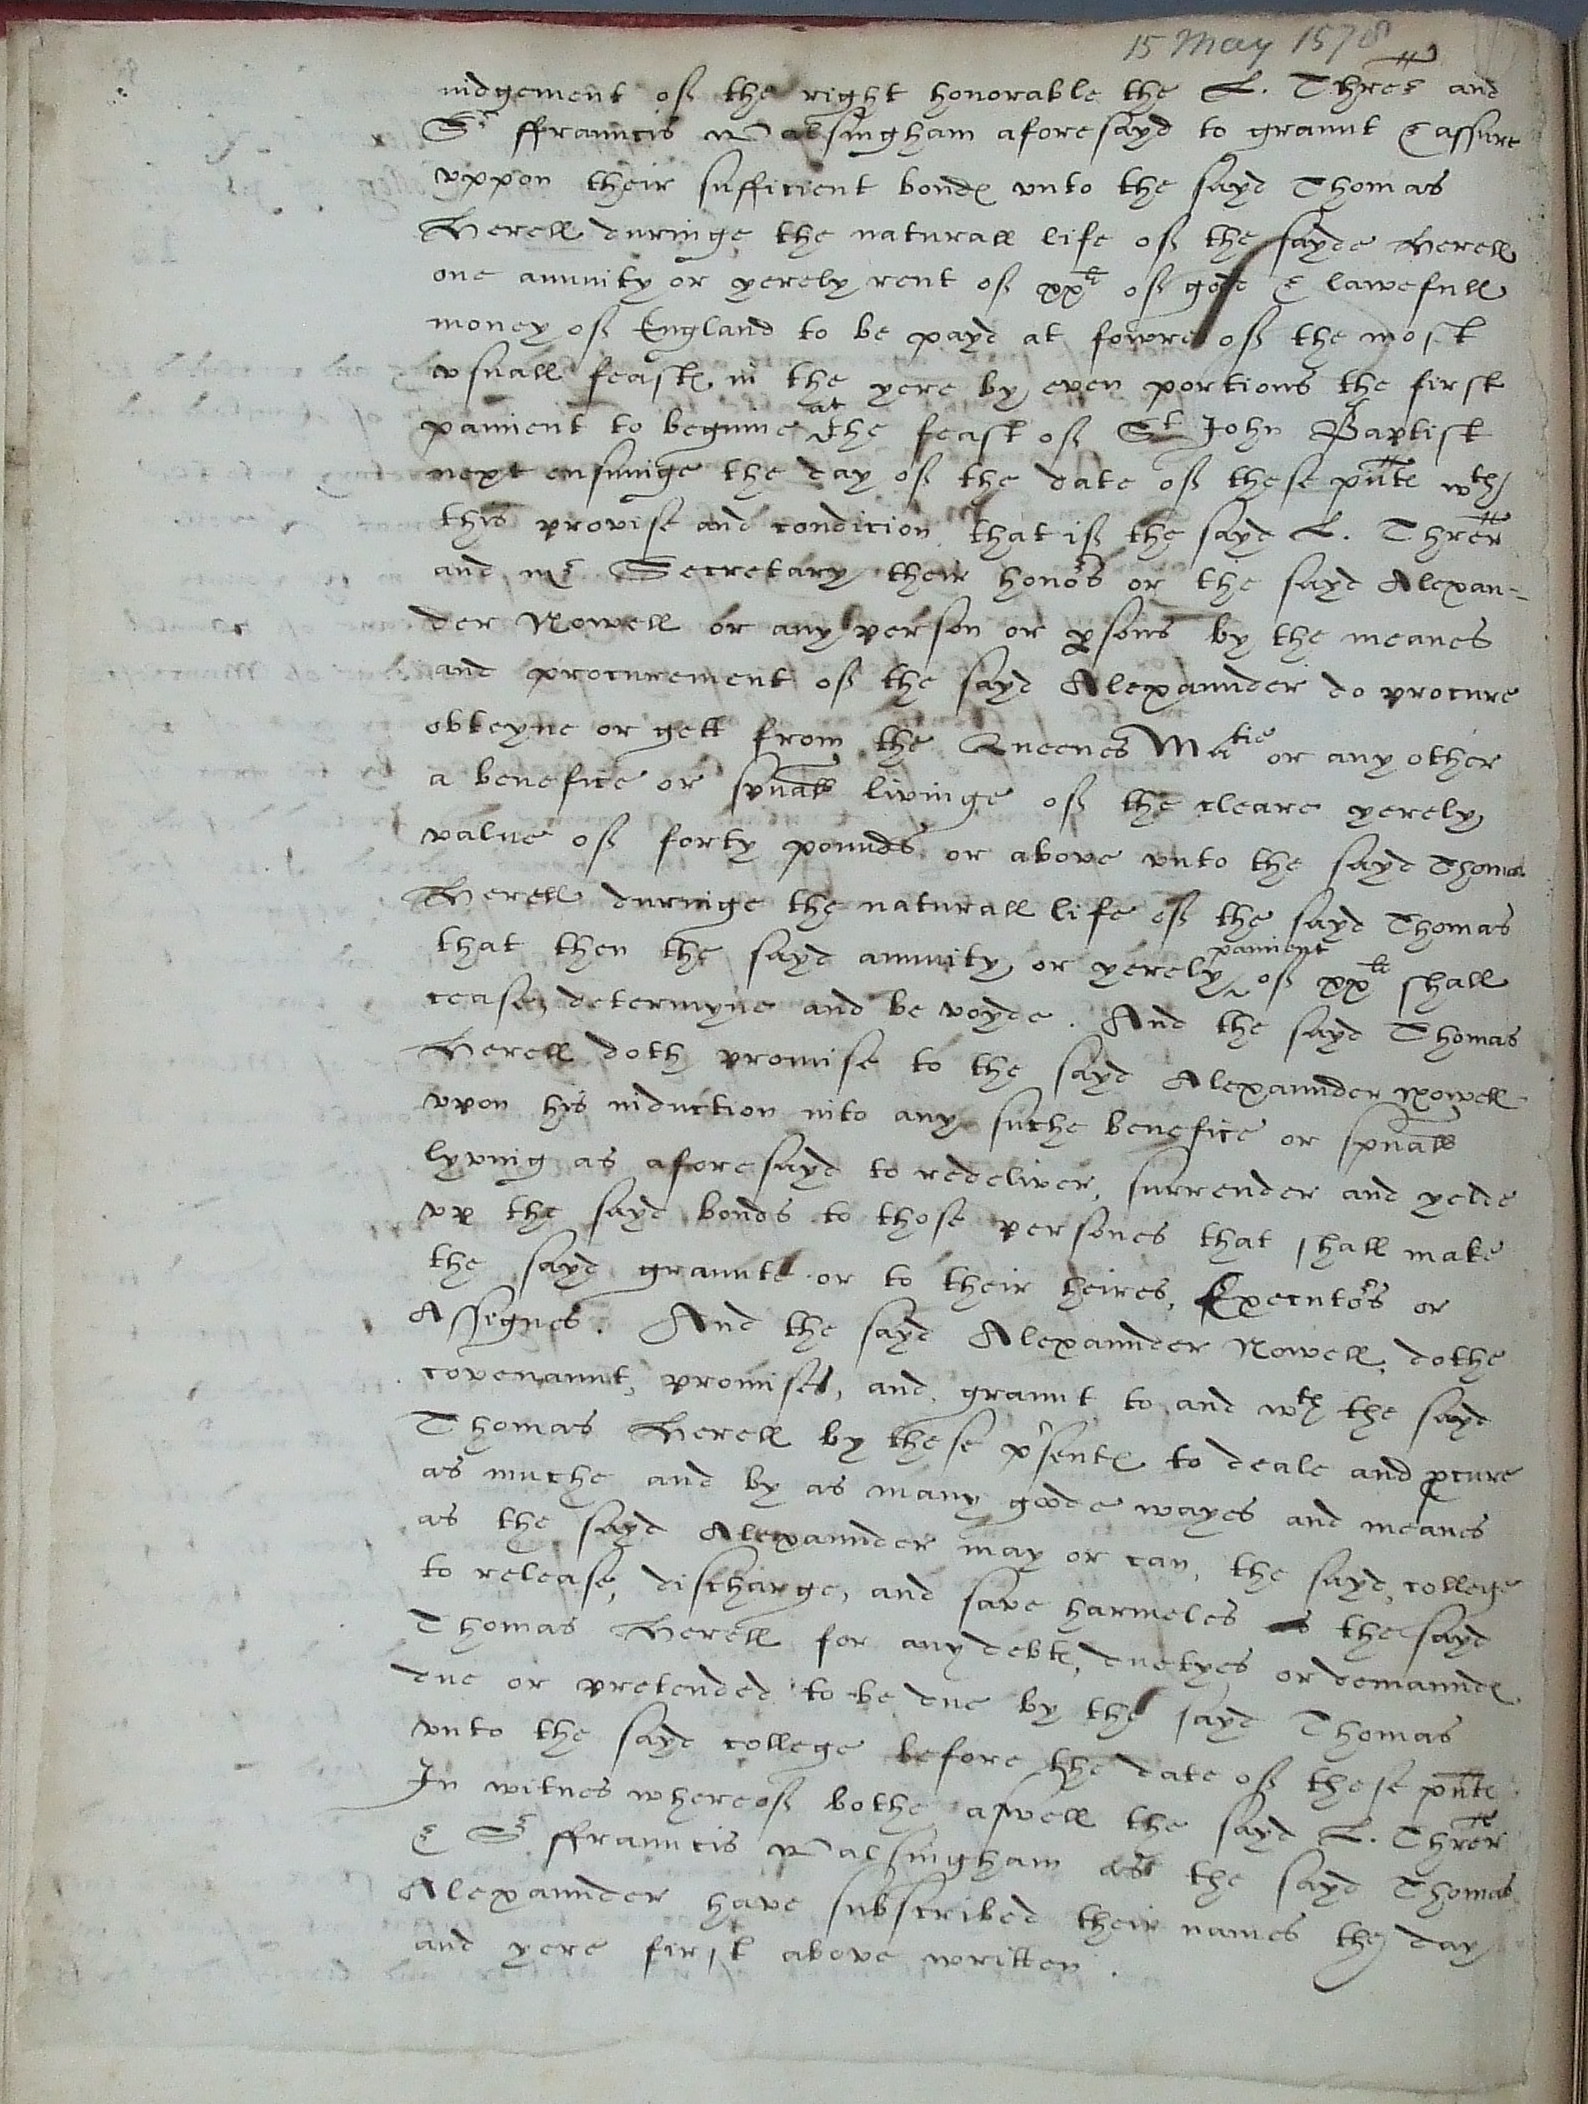 15 May 1578
iudgement off the right honorable the L. Threr and
Sr ffrauncis Walsingham aforesayd to graunt & assure
vppon their sufficient bondes vnto the sayd Thomas
Xerell duringe the naturall life off the sayde Xerell
one annuity or yerely rent off xxli off gode & lawefull
money off England to be payd at fowre off the most
vsuall feastes in the yere by even portions the first
paiment to beginne at the feast off St John Baptist
next ensuinge the day off the date off these pntes wth
this provise and condicion that iff the sayd L. Threr
and mr Secretary their honors or the sayd Alexan=
der Nowell or any person or psons by the meanes
and procurement off the sayd Alexaunder do procure
obteyne or gett from the Queenes Matie or any other
a benefice or spuall livinge off the cleare yerely
value off forty pounds or above vnto the sayd Thomas
Xerell duringe the naturall life off the sayd Thomas
that then the sayd annuity or yerely paiment off xxli shall
cease determyne and be voyde. And the sayd Thomas
Xerell doth promise to the sayd Alexaunder Nowell
vpon his induction into any suche benefice or spuall
lyving as aforesayd to redeliver, surrender and yelde
vp the sayd bonds to those persones that shall make
the sayd graunte or to their heires, Executors or
Assignes. And the sayd Alexaunder Nowell dothe
covenaunt, promise, and graunt to and wth the sayd
Thomas Xerell by these psentes to deale and pcure
as muche and by as many goode wayes and meanes
as the sayd Alexaunder may or can, the sayd college
to release, discharge, and save harmeles the sayd
Thomas Xerell for any debtes, duetyes or demaundes
due or pretended to be due by the sayd Thomas
vnto the sayd college before the date off these pntes
In witnes whereoff bothe aswell the sayd L. Threr
& Sr ffrauncis Walsingham as the sayd Thomas
Alexaunder have subscribed their names the day
and yere first above written.